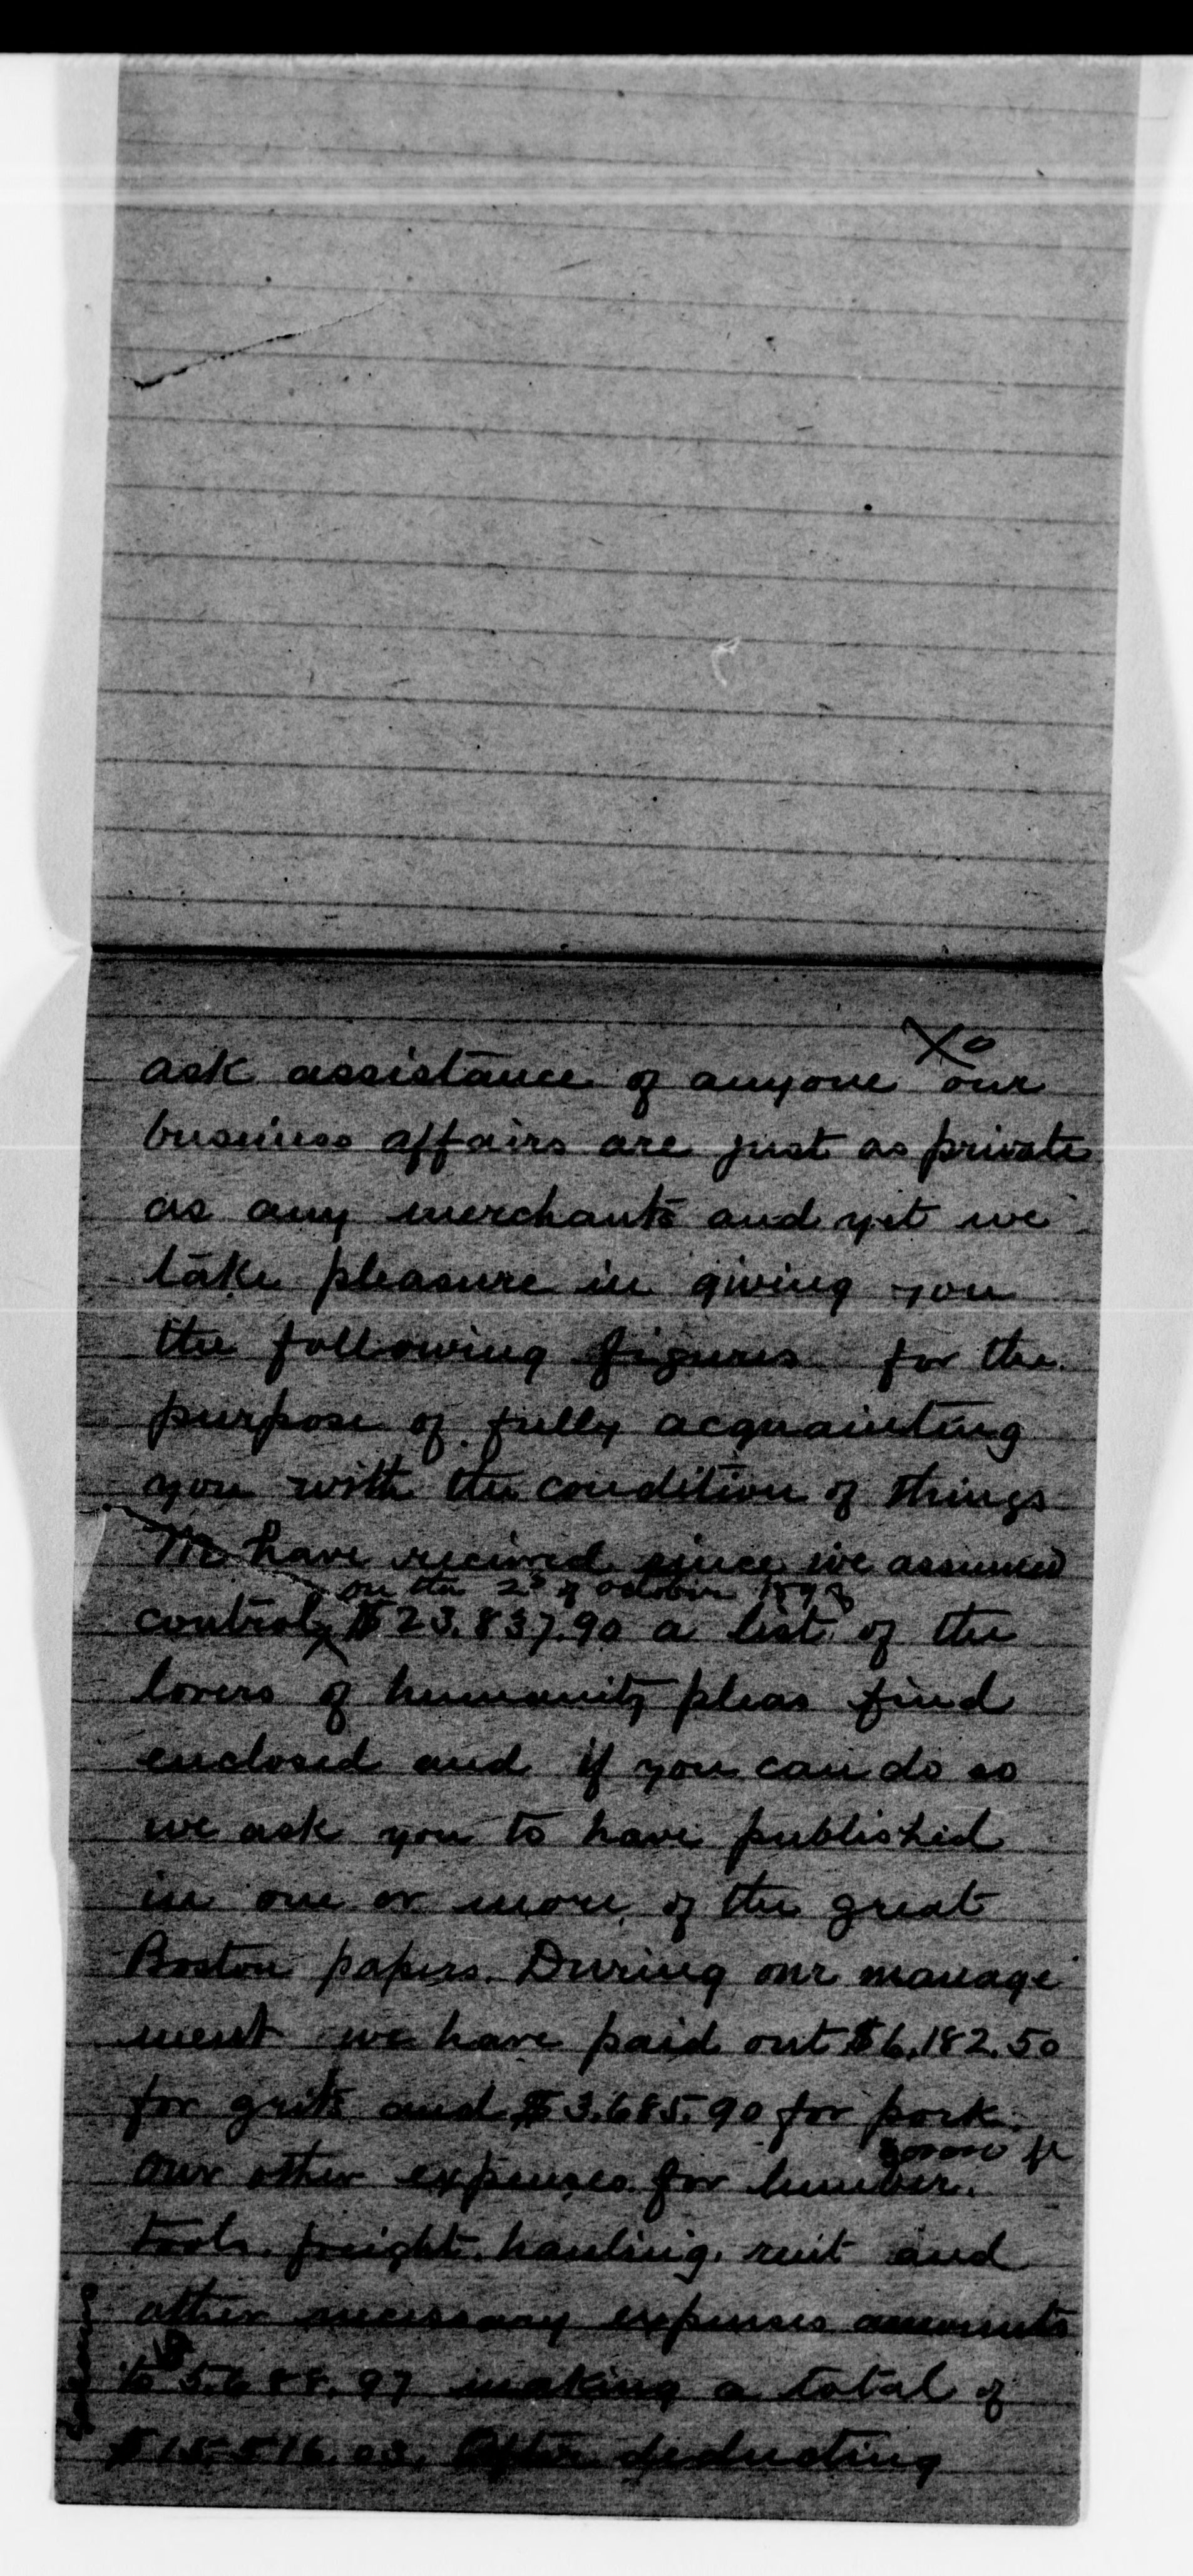 ask assistance of anyone our
business affairs are just as private
as any merchants and yet we
take pleasure in giving you
the following figures for the
purpose of fully acquainting
you with the condition of things
We have recieved since we assumed
on the 2d of October 1893
control $23.837.90 a list of the
lovers of humanity pleas find
enclosed and if you can do so
we ask you to have published
in one or more of the great
Boston papers. During our manage
ment we have paid out $6.182.50
for grits and $3.685.90 for pork.
our other expenses for lumber.
tools. freight. hauling. rent and
other necessary expenses amounts
to $5.688.97 making a total of
$15.516.03. After deducting